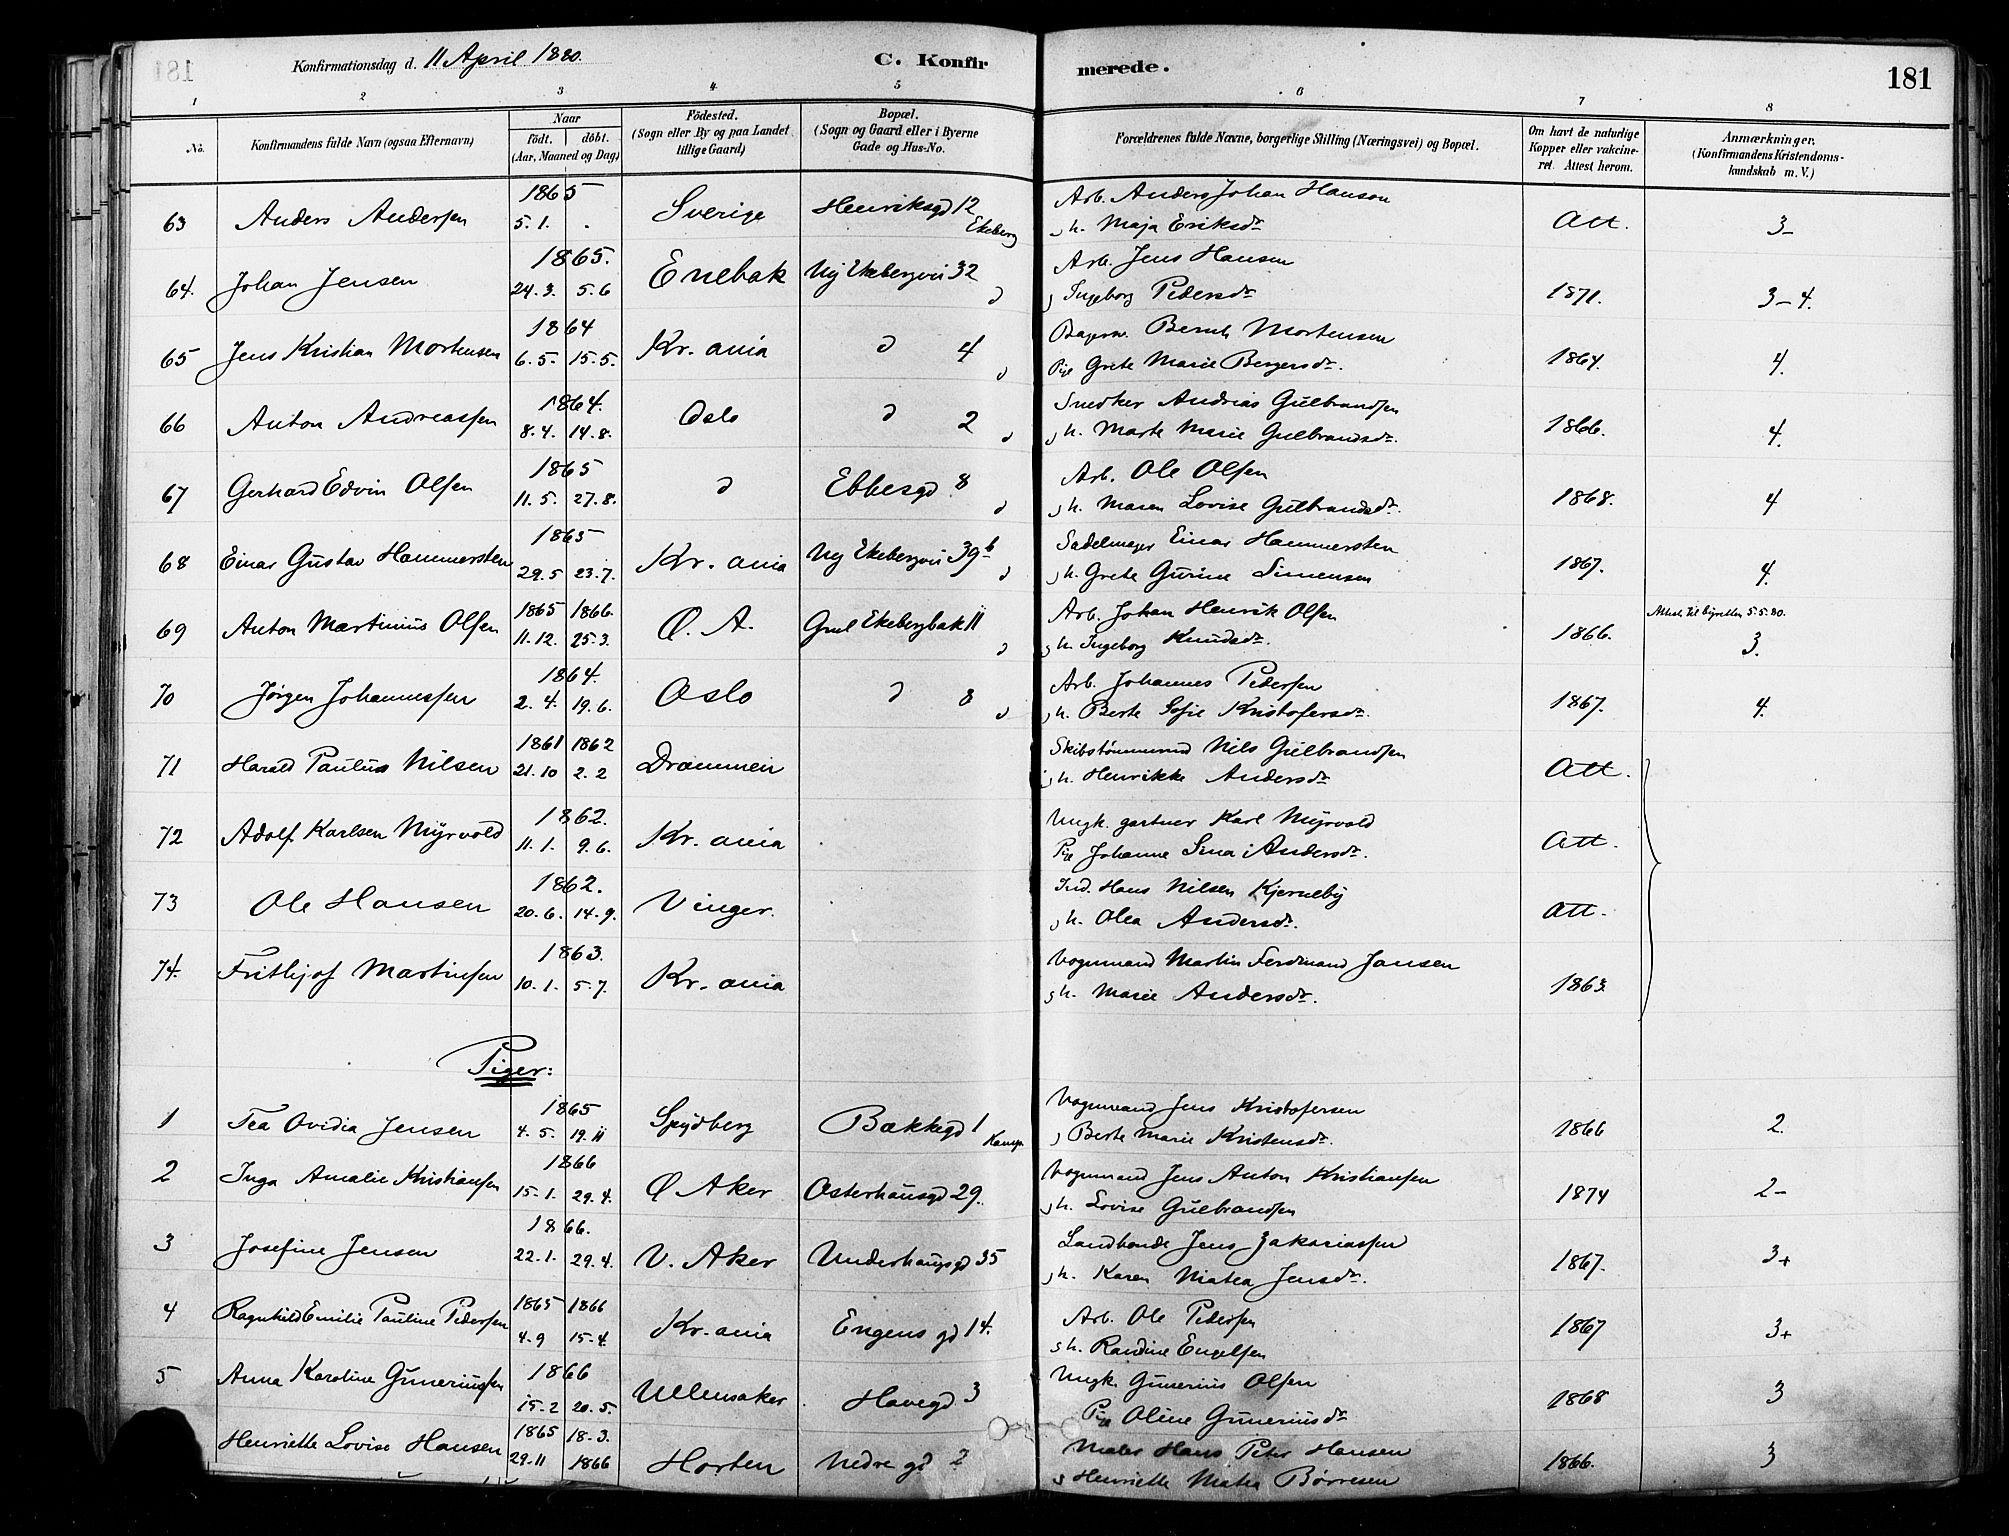 Konfirmationsdag d. 11 April 1880.
C. Konfirmerede.
181
1 2 3 4 5 6 7 8
No.
Konfirmandens fulde Navn (ogsaa Efternavn)
Naar
født. døbt.
(Aar, Maaned og Dag)
Fødested.
(Sogn eller By og paa Landet
tillige Gaard)
Bopæl.
(Sogn og Gaard eller i Byerne
Gade og Hus-No.
Forældrenes fulde Navne, borgerlige Stilling (Næringsvei) og Bopæl.
Om havt de naturlige
Kopper eller vakcine-
ret. Attest herom.
Anmærkninger.
(Konfirmandens Kristendoms-
kundskab m. V.)
63 Anders Andersen 1865 5.1. . Sverige Henriksgd 12 Ekeberg Arb. Anders Johan Hanson
h. Maja Eriksdr Att. 3-
64. Johan Jensen 1865. 24.3. 5.6 Enebak Ny Ekebergvei 32 Arb. Jens Hansen
Ingeborg Pedersdr 1871. 3-4.
65 Jens Kristian Mortensen 1864 6.5. 15.5. Kr.ania 4 Bernh Mortensen
Pige Grete Marie Bergersdr. 1864. 4.
66 Anton Andreassen 1864. 8.4. 14.8. Oslo 2 Snedker Andrias Gulbrandsen
h. Marte Marie Gulbrandsdr. 1866. 4.
67 Gerhard Edvin Olsen 1865 11.5. 27.8. Ebbesgd 8 Arb. Ole Olsen
h. Maren Lovise Gulbrandsdr. 1868. 4
68 Einar Gustav Hammersten 1865 29.5 23.7. Kr.ania Ny Ekebergvei 39b Sadelmager Einar Hammersten
h. Grete Gurine Simensen 1867. 4.
69 Anton Martinius Olsen 1865 1866. 11.12. 25.3. Ø. A. Gml Ekebergbak 11 Arb. Johan Henrik Olsen
h. Ingeborg Knudsdr. 1866. 5.5.80. 3.
70 Jørgen Johannessen 1864. 2.4. 19.6. Oslo 8 Arb. Johannes Pedersen
h. Berte Sofie Kristofersdr. 1867. 4.
71 Harald Paulus Nilsen 1861 1862 21.10 2.2 Drammen Skibstømmermd Nils Gulbrandsen
h. Henrikke Andersdr Att.
72 Adolf Karlsen Myrvold 1862. 11.1. 9.6. Kr.ania Ungk. gartner Karl Myrvold
Pige Johanne Andersdr. Att.
73 Ole Hansen 1862. 20.6. 14.9. Vinger. Ind. Hans Nilsen Kjerneby
h. Olea Andersdr. Att.
74. Frithjof Martinsen 1863. 10.1. 5.7. Kr.ania Vognmand Martin Ferdinand Jansen
h. Marie Andersdr. 1863.
Piger:
1 Tea Ovidia Jensen 1865 4.5. 19.11 Spydberg Bækkegd 1 Kampn Vognmand Jens Kristofersen
Berte Marie Kristensdr. 1866 2.
2 Inga Amalie Kristiansen 1866 15.1. 29.4. Ø Aker Osterhausgd 29. Vognmand Jens Anton Kristiansen
h. Lovise Gulbrandsen 1874 2-
3 Josefine Jensen 1866. 22.1. 29.4. V. Aker Underhaugsgd 35 Landhande Jens Zakariassen
h. Karen Matea Jensdr. 1867. 3+
4 Ragnhild Emilie Pauline Pedersen 1865 1866 4.9 15.4. Kr.ania Engens gd 14. Arb. Ole Pedersen
h. Randine Engelsen 1867 3+
5 Anna Karoline Gunerius­sen 1866 15.2 20.5. Ullensaker Havegd 3 Ungk. Gunerius Olsen
Pige Oline Gunerius­dr 1868 3
Henriette Lovise Hansen 1865 18.3. 29.11 1866 Horten Nedre gd 2 Maler Hans Peter Hansen
Henriette Matea Børresen 1866. 3